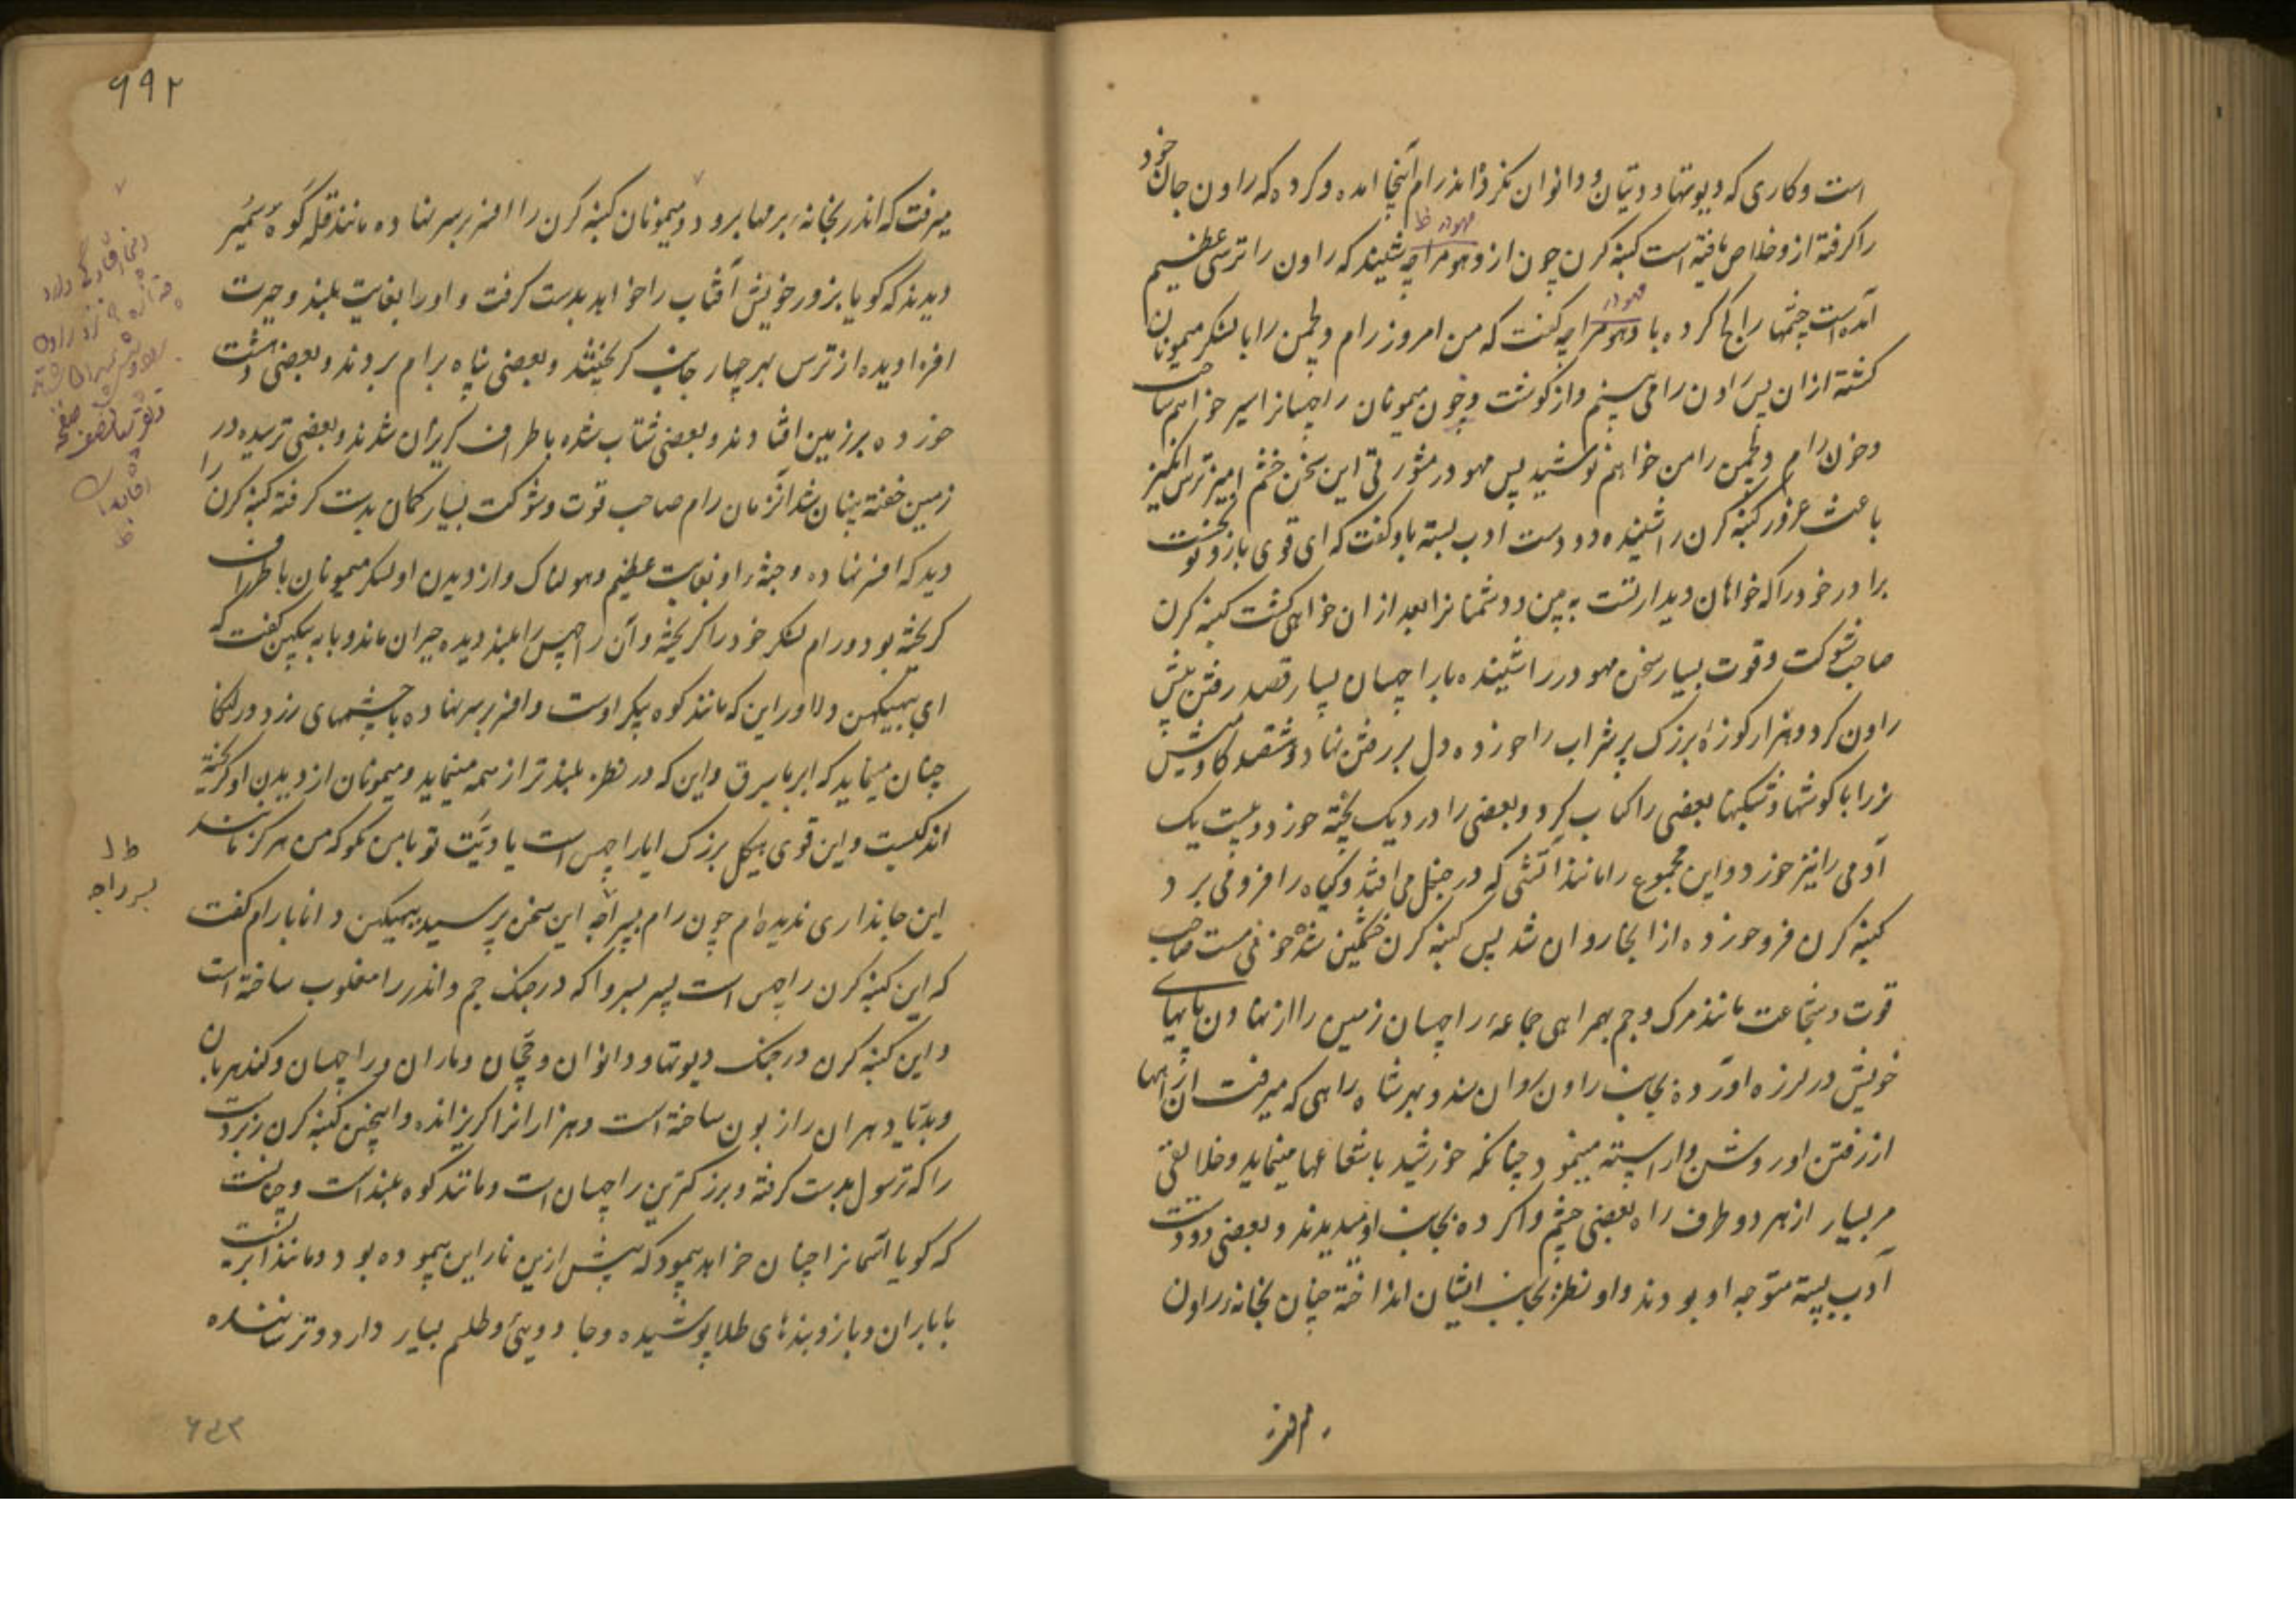 است و کاری که دیوتها و دیتان و دانوان نکرده‌اند رام اینجا امده و کرده که راون جان خود
را گرفته ازو خلاص یافته است کنبه کرن چون از دهومراچه شنید که راون را ترسی عظیم
آمده است چشمها را کرده با دهومراچه گفت که من امروز رام و لچمن را با لشکر میمونان
کشته از ان پس راون را می بینم و از گوشت و خون میمونان راچسانرا سیر خواهم ساخت
و خون رام و لچمن را من خواهم نوشید پس مهودر این سخن خشم امیز ترس انگیز
باعث غرور کنبه کرن را شنیده دو دست ادب بسته باو گفت که ای قوی بازو نخست
برادر خود را که خواهان دیدار تست به بین و دشمنانرا بعد از ان خواهی کشت کنبه کرن
صاحب شوکت و قوت بسیار سخن مهودر را شنیده با راچسان بسیار قصد رفتن پیش
راون کرد و هزار کوزهٔ بزرگ پر شراب را خورده دل بر رفتن نهاد و ششصد گاومیش
نر را با گوشها بعضی را کباب کرد و بعضی را در دیک پخته خورد و بیست یک
آدمی را نیز خورد و این مجموع را مانند آتشی که در جنگل می افتد و گیاه را فرو می برد
کنبه کرن فرو خورده از انجا روان شد پس کنبه کرن خشمگین شده خونی مست صاحب
قوت و شجاعت مانند مرگ و جم بهمراهی جماعهٔ راچسان زمین را از نهادن پایهای
خویش در لرزه اورده بجانب راون روان شد و بهر شاه راهی که میرفت ان راهها
از رفتن او روشن و اراسته مینمود چنانکه خورشید با شعاعها مینماید و خلایق
مر بسیار از هر دو طرف راه بعضی چشم وا کرده بجانب او میدیدند و بعضی دو دست
آدب بسته متوجه او بودند و او نظر بجانب ایشان انداخته چنان بخانهٔ راون
میرفت
۹۹۲
میرفت که اندر بخانهٔ برمها برود و میمونان کنبه کرن را افسر بر سر نهاده مانند قله کوه سمیر
دیدند که گویا بزور خویش آفتاب را خواهد بدست گرفت و او را بغایت بلند و حیرت
افزا دیده از ترس بهر چهار جانب گریختند و بعضی پناه برام بردند و بعضی دهشت
خورده بر زمین افتادند و بعضی شتاب شده باطراف گریزان شدند و بعضی ترسیده در
زمین خفته پنهان شد انزمان رام صاحب قوت و شوکت بسیار کمان بدست گرفته کنبه کرن را
دید که افسر نهاده و جثهٔ او بغایت عظیم و هولناک و از دیدن او لشکر میمونان باطراف
گریخته بود و رام لشکر خود را گریخته و آن راچس را بلند دیده حیران ماند و با ببهیکهن گفت که
ای ببهیکهن دلاور این که مانند کوه پیکر اوست و افسر بر سر نهاده با چشمهای زرد در لنکا
چنان مینماید که ابر با برق و این که در نظر بلندتر از همه مینماید و میمونان از دیدن او گریخته
اند کیست و این قوی هیکل بزرگ ایا راچس است یا دیَت تو با من بگو که من هرگز مانند
این جانداری ندیده‌ام چون رام پسر راجه این سخن پرسید ببهیکهن دانا با رام گفت
که این کنبه کرن راچس است پسر بسروا که در جنگ جم و اندر را مغلوب ساخته است
و این کنبه کرن در جنگ دیوتها و دانوان و جَچان و ماران و راچسان و گندهربان
و بدیادهران را زبون ساخته است و هزارانرا گریزانده و اینچنین کنبه کرن زبردست
را که ترسول بدست گرفته و بزرگترین راچسان است و مانند کوه بلند است و چنانست
که گویا اسمانرا چنان خواهد پیمود که پیش ازین ناراین پیموده بود و مانند ابریست
با باران و بازوبندهای طلا پوشیده و جادویی و طلسم بسیار دارد و ترساننده
پسر راجه